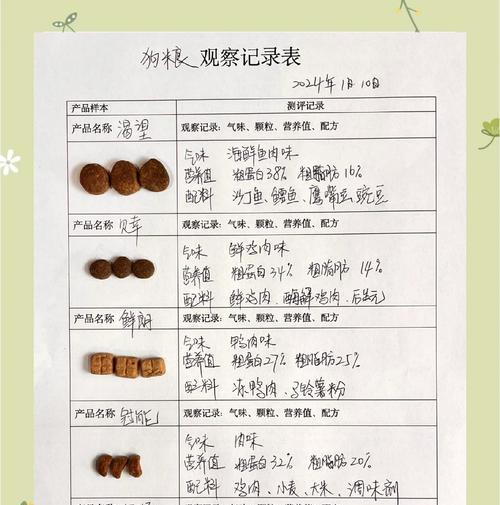 狗粮 观察记录表
2024年1月10日
产品样本 测评记录
产品名称 渴望 观察记录：气味、颗粒、营养值、配方
气味 海鲜鱼肉味
营养值 粗蛋白38% 粗脂肪16%
配料 沙丁鱼、鳕鱼、鹰嘴豆、豌豆
产品名称 贝幸 观察记录：气味、颗粒、营养值、配方
气味 鲜鸡肉味
营养值 粗蛋白34% 粗脂肪 14%
配料 鲜鸡肉、酶解鸡肉、后生元
产品名称 鲜朗 观察记录：气味、颗粒、营养值、配方
气味 鸭肉味
营养值 粗蛋白27% 粗脂肪25%
配料 冻鸭肉、马铃薯粉
产品名称 冠能 观察记录：气味、颗粒、营养值、配方
气味 肉味
营养值 粗蛋白32% 粗脂肪20%
配料 鸡肉、小麦、大米、调味剂